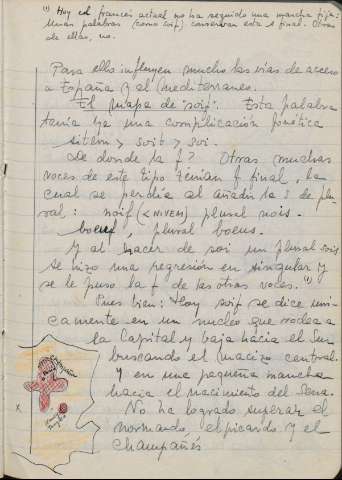 (1) Hoy el francés actual no ha seguido una marcha fija:
Unas palabras (como soif) conservan esta f final. Otras
de ellas, no.
Para ello influyen mucho las vias de acceso
a España y al mediterraneo.
El mapa de soif: Esta palabra
tenía ya una complicación fonética
sitem > soit > soi.
De donde la f? Otras muchas
voces de este tipo tenían f final, la
cual se perdía al añadir la s de plu-
ral: noif (< NIVEM) plural nois.
boeuf, plural boeus.
Y al hacer de soi un plural sois
se hizo una regresión en singular y
se le puso la f de las otras voces. (1)
Pues bien: Hoy soif se dice uni-
camente en un nucleo que rodea a
la Capital y baja hacia el Sur
buscando el macizo central.
Y en una pequeña mancha
hacia el nacimiento del Sena.
No ha logrado superar el
normando, el picardo y el
champañés
x